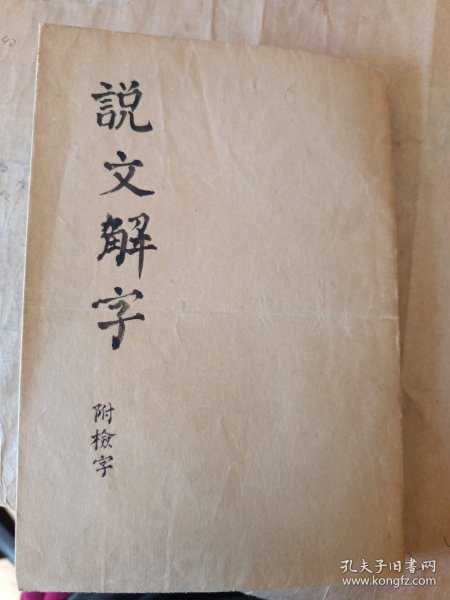 説文解字
附檢字
孔夫子旧书网
www.kongfz.com